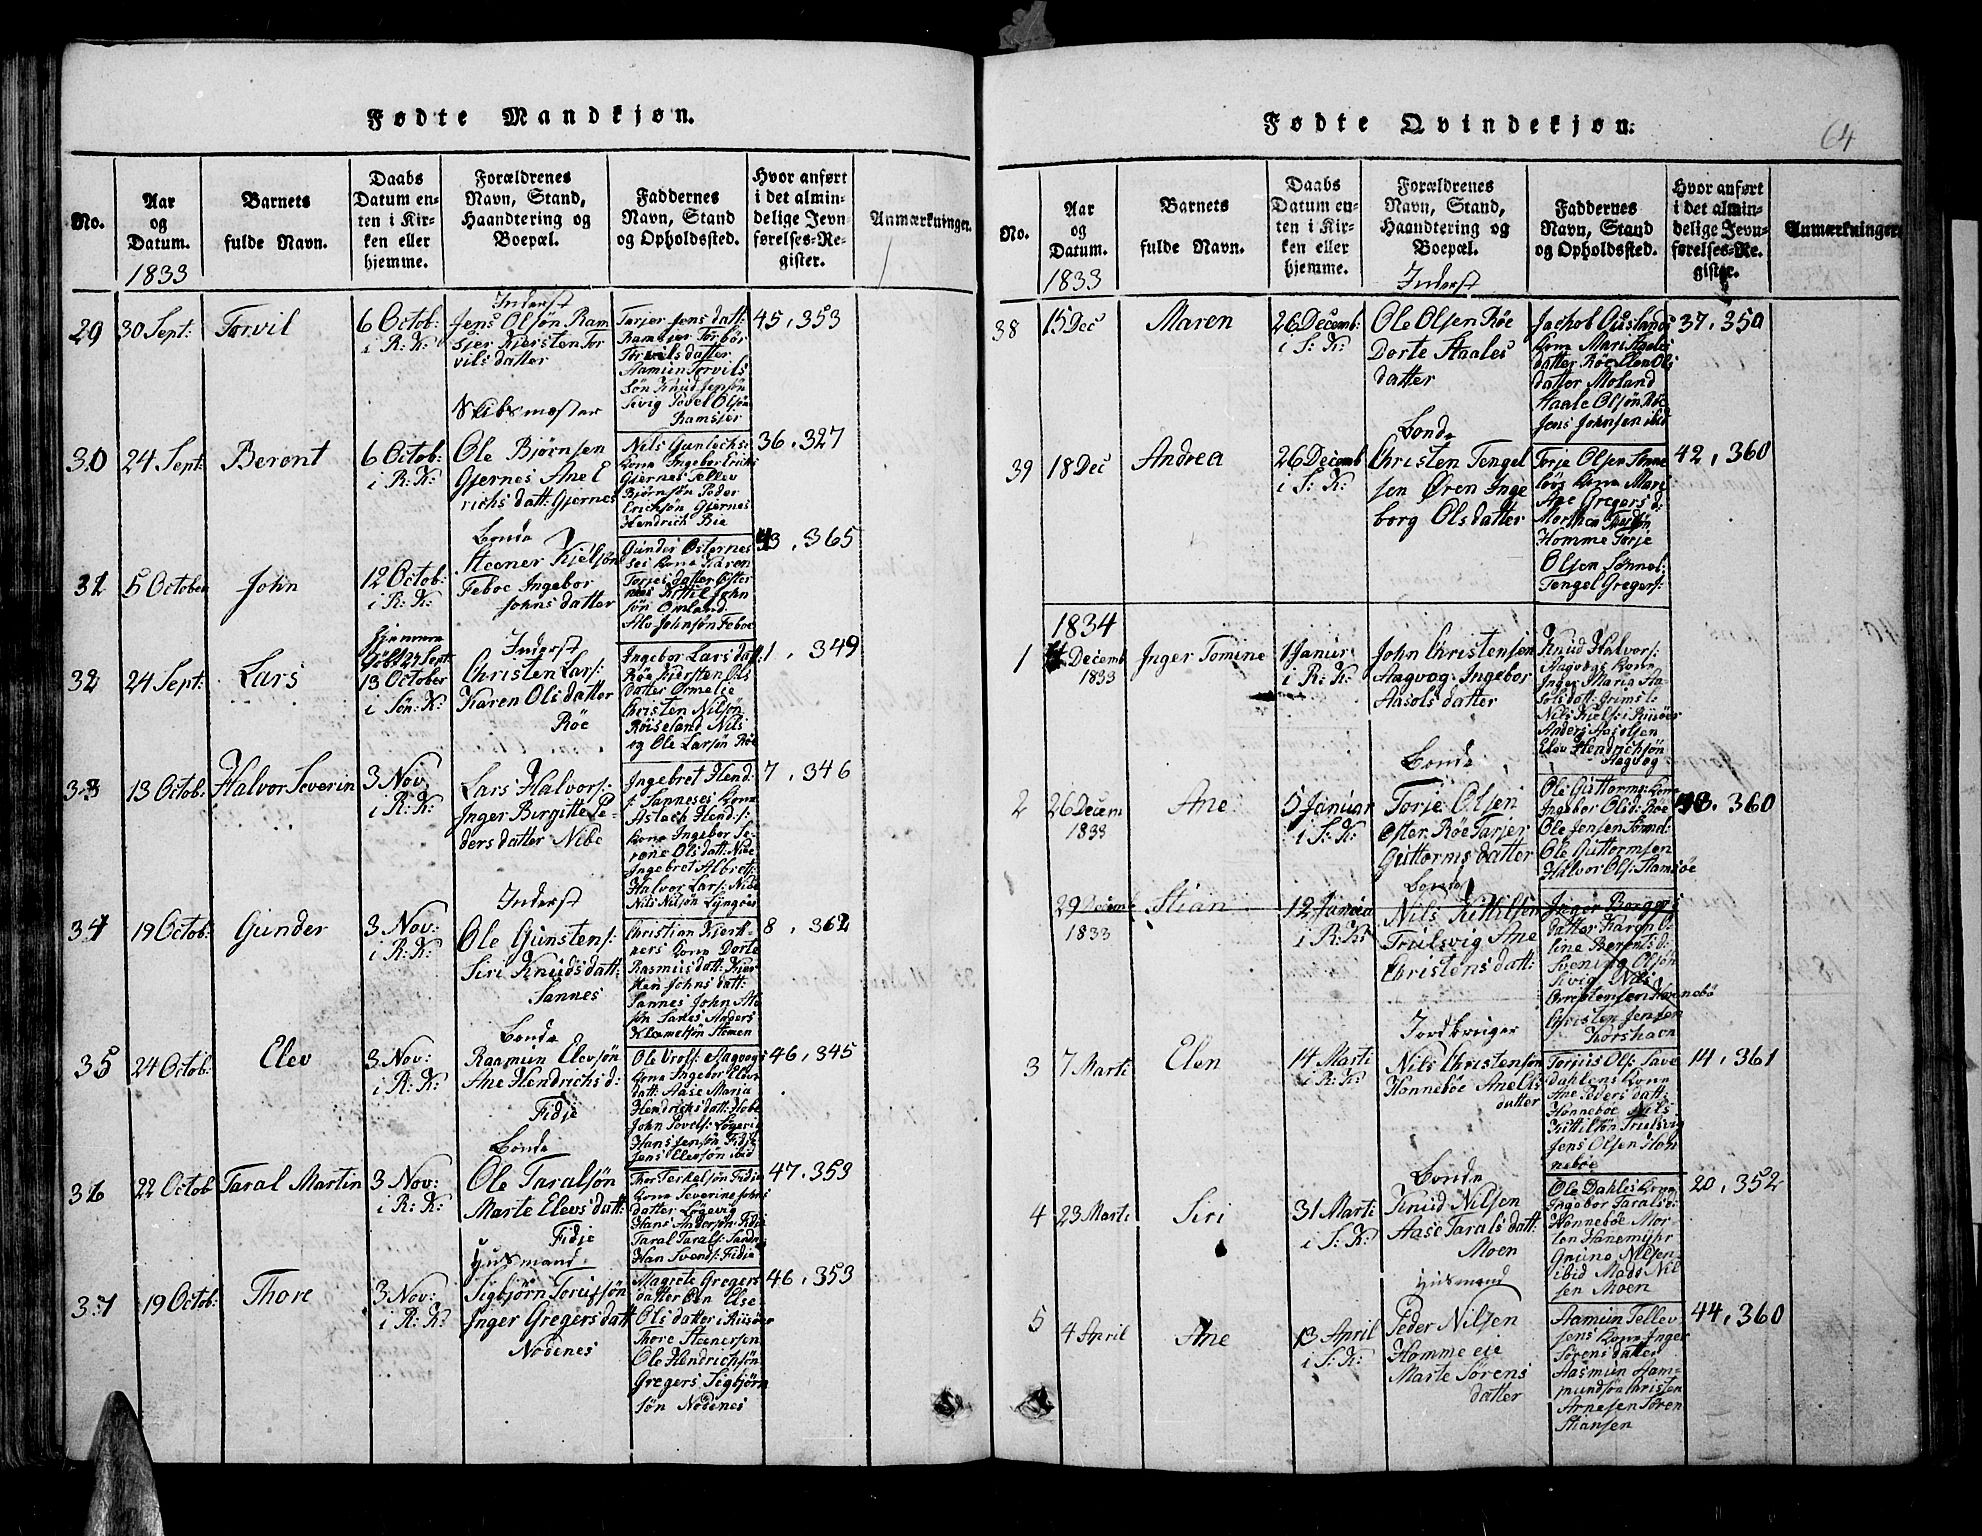 Fødte Mandkjøn.
No.
Aar
og
Datum.
1833
Barnets
fulde Navn.
Daabs
Datum en-
ten i Kir-
ken eller
hjemme.
Forældrenes
Navn, Stand,
Haandtering og
Boepæl.
Faddernes
Navn, Stand
og Opholdssted.
Hvor anført
i det almin-
delige Jevn
førelses-Re-
gister.
Anmærkninger.
29
30 Sept:
Torvil
6 Octob:
i R: K:
Inderst
Jens Olsøn Ram
sjer Kjersten Tor
vils datter
Tarjer Jens datt:
Ramsjer Torbor
Torvils datter
Aamün Torvils
søn Knud Jensøn
Sivig Povel Olsøn
Ramsjer
45, 353
30
24 Sept:
Berent
6 Octob:
i R: K:
Skibsmester
Ole Bjørnsen
Gjernes Ane E
richs datt: Gjernes
Nils Gunlechs:
kone Ingebor Erichs
Gjernes Tellev
Bjørnsøn Peder
Erichsøn Gjernes
Hendrich Bie
36, 327
31
5 October
John
12 Octob:
i R: K:
Bonde
Steener Kjelsøn
Feboe Ingebor
Johns datter
Gunder Østernes
ses kone Karen
Torjes datter Øster
nes Kittil John
søn Omland
Als Johnsøn Feboe
43, 365
32
24 Sept:
Lars
hjemme
døbt 27 Sept
13 October
i Søn: K:
Inderst
Christen Lars:
Karen Ols datter
Røe
Ingebor Lars datt
Røe Kjersten Ols
datter Ørmelie
Christen Nilsøn
Røiseland Nils
og Ole Larsøn Røe
1, 349
33
13 Octob:
Halvor Severin
3 Nov
i R: K:
Lars Halvors:
Inger Birgitte Pe-
ders datter Nibe
Ingebret Hend:
s: Sanneses kone
Aslaeb Hends:
kone Ingebor Se-
rene Ols datt: Nibe
Ingebret Albrets:
Halvor Lars: Nibe
Nils Nilsøn Lyngør
7, 346
34
19 Octob:
Gunder
3 Nov:
i R: K:
Inderst
Ole Gunstens:
Siri Knuds datt:
Sannes
Christian Kjerk-
ners kone Dorte
Rasmus datt: Kjer
sten Johns datt:
Sannes John Aa
søn Sanes Anders
Klemetsøn Stemen
8, 362
35
24 Octob:
Elev
3 Nov:
i R: K:
Bonde
Raamun Elevsøn
Ane Hendrichs d:
Fidje
Ole Vrols: Aagvags
kone Ingebor Elevs
datt: Aase Maria
Hendrichs datt: Hobe
John Povels: Løgevig
Hans Jensøn Fidje
Jens Elefsøn ibid
46, 345
36
22 Octob
Taral Martin
3 Nov:
i R: K:
Bonde
Ole Taralsøn
Marte Elevs datt:
Fidje
Thor Terkelsøn Fidje
kone Severine Johns
datter Løgevig
Hans Andersøn Fidje
Taral Tarals: Sandnes
Han Svends: Fidje
47, 353
37
19 Octob:
Thore
3 Nov:
i R: K:
Husmand
Sigbjørn Torissøn
Inger Gregers datt
Nødenes
Magrete Gregers
datter Oen Else
Ols datter i Riisøer
Thore Steenersen
Ole Hendrichsøn
Gregers Sigbjørn
søn Nødenes
46, 353
Fødte Qvindekjøn.
64
No.
Aar
og
Datum.
1833
Barnets
fulde Navn.
Daabs
Datum en-
ten i Kir-
ken eller
hjemme.
Forældrenes
Navn, Stand,
Haandtering og
Boepæl.
Faddernes
Navn, Stand
og Opholdssted.
Hvor anført
i det almin-
delige Jevn-
førelses-Re-
gister.
Anmærkninger
38
15 Dec
Maren
26 Decemb:
i S: K:
Inderst
Ole Olsen Røe
Dorte Staales
datter
Jachob Ouslands
kone Mari Staales
datter Røe Elen Ols
datter Moland
Staale Olsøn Røe
Jens Johnsen ibid
37, 350
39
18 Dec
Andrea
26 Decemb
i S: K:
Bonde
Christen Tengel
sen Øren Inge
borg Olsdatter
Torje Olsen Sønne
løvs kone Mari
Ane Gregers d:
Homme Torje
Olsen Sønnel:
Tengel Gregers:
42, 360
1834
1
Decemb
1833
Inger Tomine
1 Januar
i R: K:
John Christensen
Aagvag Ingebor
Aasols datter
Knud Halvors:
Aagvags kone
Inger Maria Aa-
sols datt: Grimst:
Nils Kjels: i Riisøer
Anders Aasolsen
Elev Hendrichsøn
Aagvag
2
26 Decem
1833
Ane
5 Januar
i S: K:
Bonde
Torje Olsen
Øster Røe Tarjer
Guttorms datter
Ole Guttorms: kone
Ingebor Olsd: Røe
Ole Jensen Sønnel:
Ole Guttormsen
Halvor Ols: Stamsøe
43, 360
29 Decemb
1833
Stian
12 Januar
i R: K:
Bonde
Nils Kittilsen
Trulsvig Ane
Christens datt:
Inger Børgers
datter Karen O-
line Berents d:
Svening Olsøn
Sivig Nils
Christensen Honnebø
Christen Jensen
Korshavn
3
7 Marti
Elen
14 Marti
i R: K:
Jordbruger
Nils Christensøn
Honnebøe Ane Ols
datter
Torjus Ols: Save
dahlens kone
Ane Peders datt:
Honneboe Nils
Kittilsøn Trulsvig
Jens Olsen Hon
nebøe
14, 361
4
23 Marti
Siri
31 Marti
i S: K:
Bonde
Knud Nilsen
Aase Tarals datt:
Moen
Ole Dahles kone
Ingebor Tarals d:
Honnebøe Mor-
ten Hanemyhr
Gnune Nilsen
ibid Mads Nil
sen Moen
20, 352
5
4 April
Ane
13 April
i S: K:
Husmand
Peder Nilsen
Homme eie
Marte Sørens
datter
Aamun Tellev
sens kone Inger
Sørens datter
Aasmun Aam-
mundsøn Christen
Arnesen Søren
Stiansen
44, 360